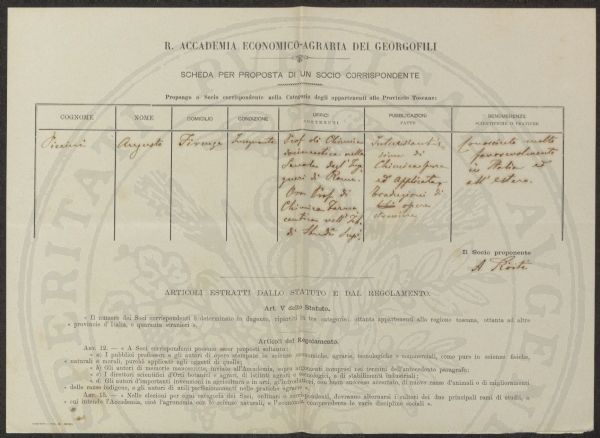 R. ACCADEMIA ECONOMICO-AGRARIA DEI GEORGOFILI
SCHEDA PER PROPOSTA DI UN SOCIO CORRISPONDENTE
Propongo a Socio corrispondente nella Categoria degli appartenenti alle Provincie Toscane:
COGNOME NOME DOMICILIO CONDIZIONE UFFICI PUBBLICAZIONI FATTE BENEMERENZE SCIENTIFICHE O PRATICHE
Piccini Augusto Firenze Insegnante
Prof. di Chimica
docimastica nella
Scuola degl'Inge
gneri di Roma.
Ora Prof. di
Chimica Farma
ceutica nell'Ist.
di Studi Sup.
Interessantis
sime di
Chimica pura
ed applicata,
traduzioni di
opere
Conosciuto molto
favorevolmente
in Italia ed
all'estero.
Il Socio proponente
ARTICOLI ESTRATTI DALLO STATUTO E DAL REGOLAMENTO.
Art. V dello Statuto.
« Il numero dei Soci corrispondenti è determinato in dugento, ripartiti in tre categorie: ottanta appartenenti alle regione toscana, ottanta ad altre
« provincie d'Italia, e quaranta stranieri ».
Articoli del Regolamento.
ART. 12. — « A Soci corrispondenti possono esser proposti soltanto:
« a) I pubblici professori e gli autori di opere stampate in scienze economiche, agrarie, tecnologiche e commerciali, come pure in scienze fisiche,
« naturali e morali, purchè applicate agli oggetti di che agli oggetti di
« b) Gli autori di memorie manoscritte, inviate all'Accademia, sopra argomenti compresi nei termini dell'antecedente paragrafo;
« c) I direttori scientifici d'Orti botanici e agrari, di istituti agrari e tecnologici, e di stabilimenti industriali;
« d) Gli autori d'importanti invenzioni in agricoltura o in arti, gl'introduttori, con buon successo accertato, di nuove razze d'animali o di miglioramenti
« delle razze indigene, e gli autori di utili perfezionamenti nelle pratiche agrarie ».
ART. 15. — « Nelle elezioni per ogni categoria dei Soci, ordinari e corrispondenti, dovranno alternarsi i cultori dei due principali rami di studii, a
« cui intende l'Accademia, cioè l'agronomia con le scienze naturali, e l'economia comprendente le varie discipline sociali ».